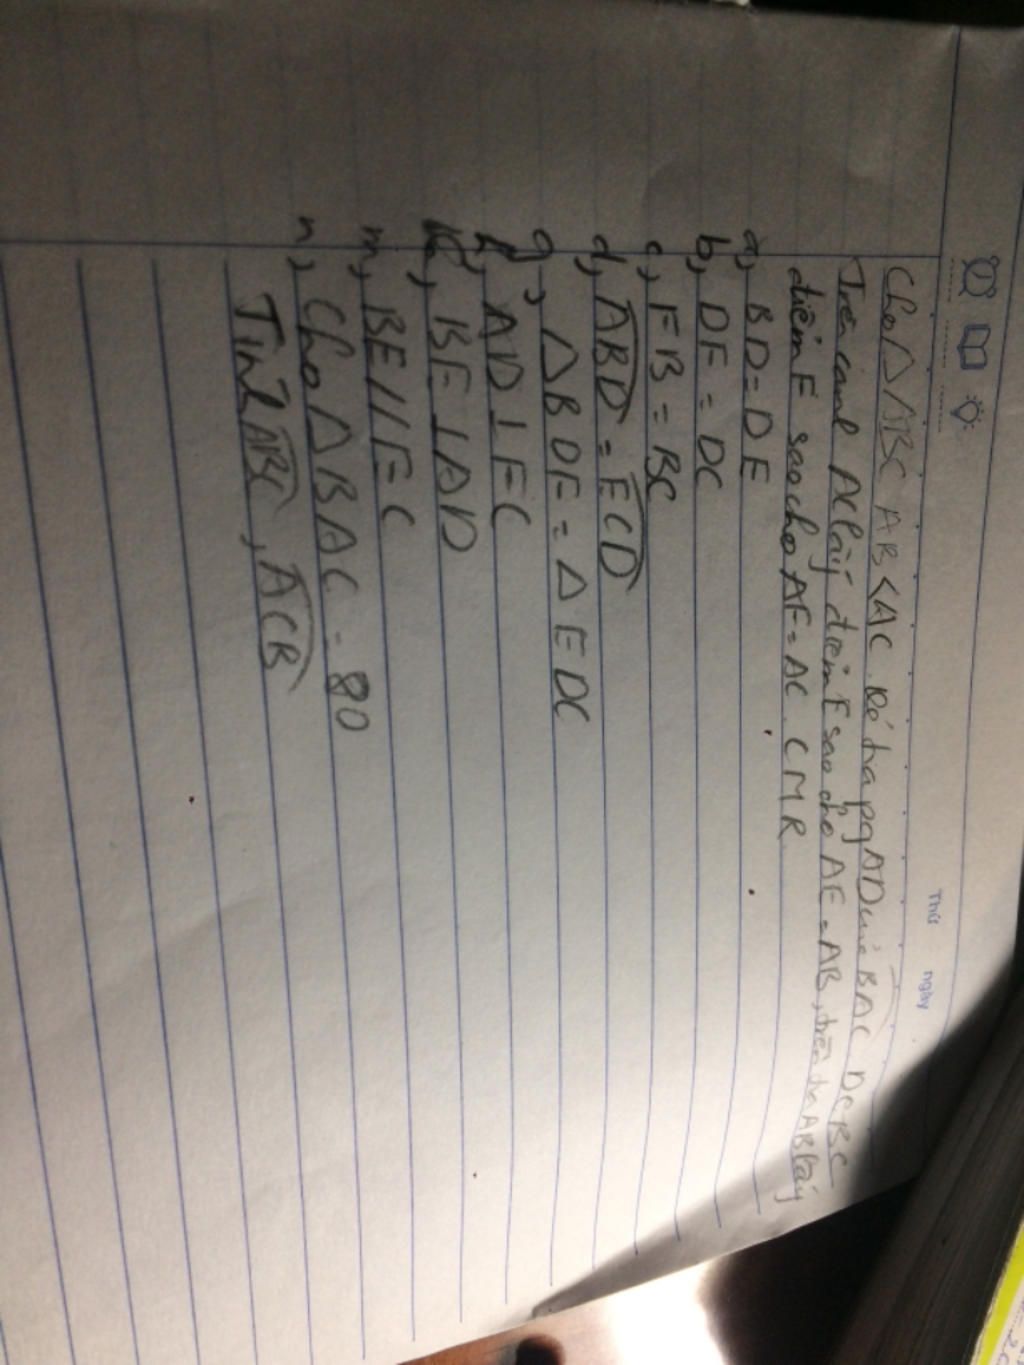 Thứ ngày
Cho △ABC AB < AC. Kẻ tia pg AD của BAC D∈BC
Trên cạnh AC lấy điểm E sao cho AE = AB, trên tia AB lấy
điểm F sao cho AF = AC. CMR
a, BD = DE
b, DF = DC
c, FB = BC
d, ABD = ECD
g, △BDF = △EDC
h, AD ⊥ FC
k, BE ⊥ AD
m, BE // FC
n, Cho △BAC = 80
Tính ABC, ACB